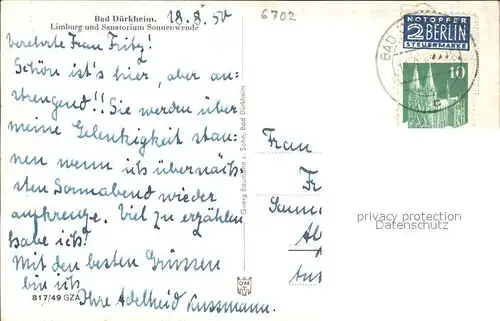 Bad Dürkheim.
Limburg und Sanatorium Sonnenwende
18.8.50
6702
Verehrte Frau Fritz!
Schön ist's hier, aber an-
strengend!! Sie werden über
meine Gelenkigkeit stau-
nen wenn ich übernäch-
sten Sonnabend wieder
aufkreuze. Viel zu erzählen
habe ich!
Mit den besten Grüssen
bin ich
Ihre Adelheid Kussmann.
817/49 GZA
Georg Baum u. Sohn, Bad Dürkheim
OM
NOTOPFER
2 BERLIN
STEUERMARKE
BAD
c
10
Frau
Fr
privacy protection
Datenschutz